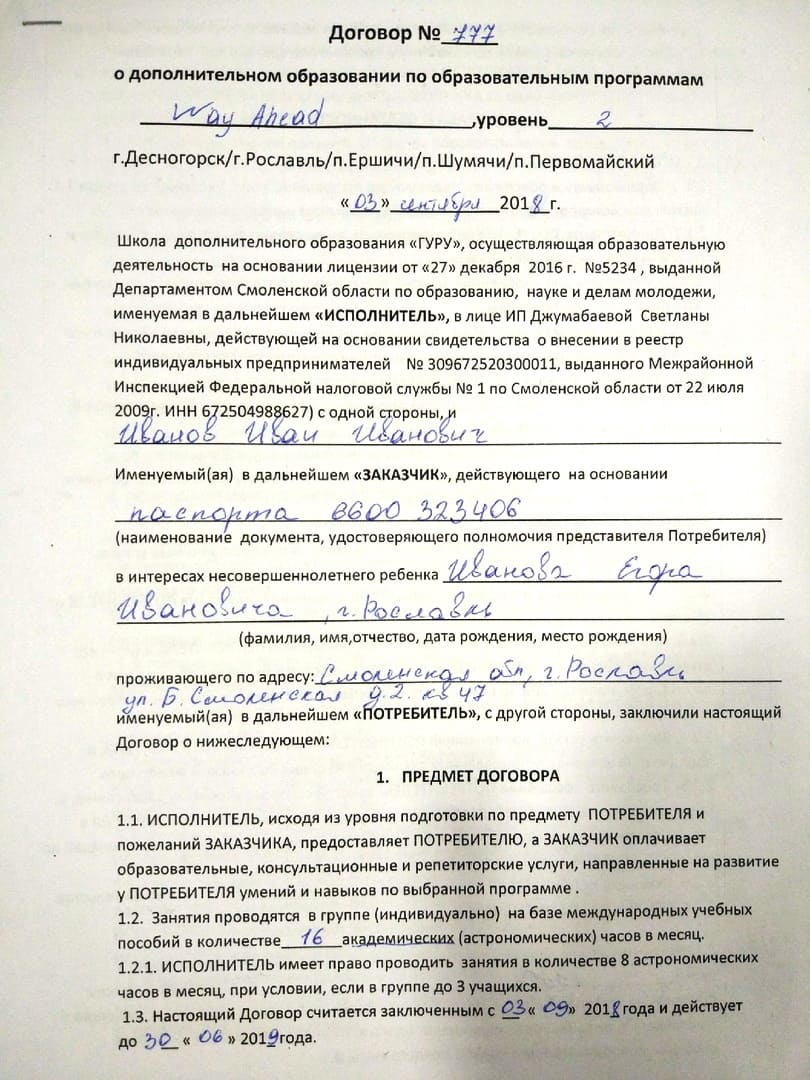 Договор № 777
о дополнительном образовании по образовательным программам
Way Ahead ,уровень 2
г.Десногорск/г.Рославль/п.Ершичи/п.Шумячи/п.Первомайский
«03» сентября 2018 г.
Школа дополнительного образования «ГУРУ», осуществляющая образовательную
деятельность на основании лицензии от «27» декабря 2016 г. №5234 , выданной
Департаментом Смоленской области по образованию, науке и делам молодежи,
именуемая в дальнейшем «ИСПОЛНИТЕЛЬ», в лице ИП Джумабаевой Светланы
Николаевны, действующей на основании свидетельства о внесении в реестр
индивидуальных предпринимателей № 309672520300011, выданного Межрайонной
Инспекцией Федеральной налоговой службы № 1 по Смоленской области от 22 июля
2009г. ИНН 672504988627) с одной стороны, и
Иванов Иван Иванович
Именуемый(ая) в дальнейшем «ЗАКАЗЧИК», действующего на основании
паспорта 6600 323406
(наименование документа, удостоверяющего полномочия представителя Потребителя)
в интересах несовершеннолетнего ребенка Иванова Егора
Ивановича , г. Рославль
(фамилия, имя,отчество, дата рождения, место рождения)
проживающего по адресу: Смоленская обл, г. Рославль
ул. Б. Смоленская д.2. кв 47
именуемый(ая) в дальнейшем «ПОТРЕБИТЕЛЬ», с другой стороны, заключили настоящий
Договор о нижеследующем:
1. ПРЕДМЕТ ДОГОВОРА
1.1. ИСПОЛНИТЕЛЬ, исходя из уровня подготовки по предмету ПОТРЕБИТЕЛЯ и
пожеланий ЗАКАЗЧИКА, предоставляет ПОТРЕБИТЕЛЮ, а ЗАКАЗЧИК оплачивает
образовательные, консультационные и репетиторские услуги, направленные на развитие
у ПОТРЕБИТЕЛЯ умений и навыков по выбранной программе .
1.2. Занятия проводятся в группе (индивидуально) на базе международных учебных
пособий в количестве 16 академических (астрономических) часов в месяц.
1.2.1. ИСПОЛНИТЕЛЬ имеет право проводить занятия в количестве 8 астрономических
часов в месяц, при условии, если в группе до 3 учащихся.
1.3. Настоящий Договор считается заключенным с 03 « 09» 2018 года и действует
до 30 « 06 » 2019года.